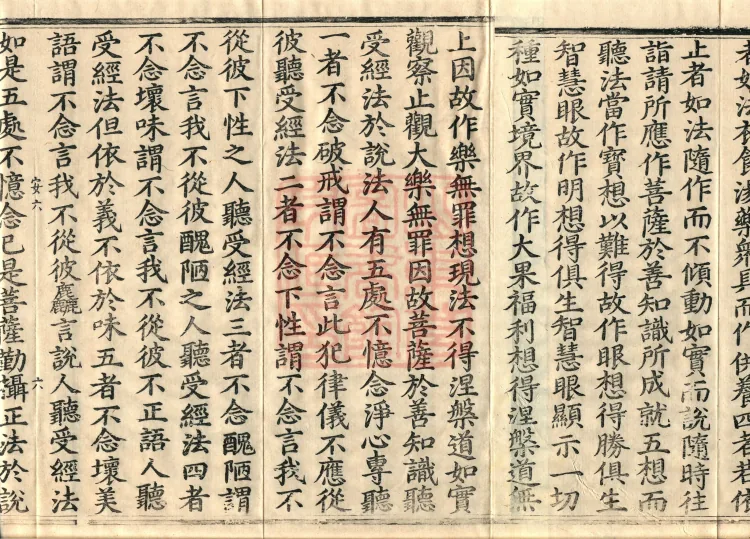 者如法衣飾湯藥眾具而作供養四者若作
止者如法隨作而不傾動如實而說隨時往
詣請所應作菩薩於善知識所成就五想而
聽法當作寶想以難得故作眼想得勝俱生
智慧眼故作明想得俱生智慧眼顯示一切
種如實境界故作大果福利想得涅槃道無
上因故作樂無罪想現法不得涅槃道如實
觀察止觀大樂無罪因故菩薩於善知識聽
受經法於說法人有五處不憶念淨心專聽
一者不念破戒謂不念言此犯律儀不應從
彼聽受經法二者不念下性謂不念言我不
從彼下性之人聽受經法三者不念醜陋謂
不念言我不從彼醜陋之人聽受經法四者
不念壞味謂不念言我不從彼不正語人聽
受經法但依於義不依於味五者不念壞美
語謂不念言我不從彼麤言說人聽受經法
安六 六
如是五處不憶念已是菩薩勤攝正法於說